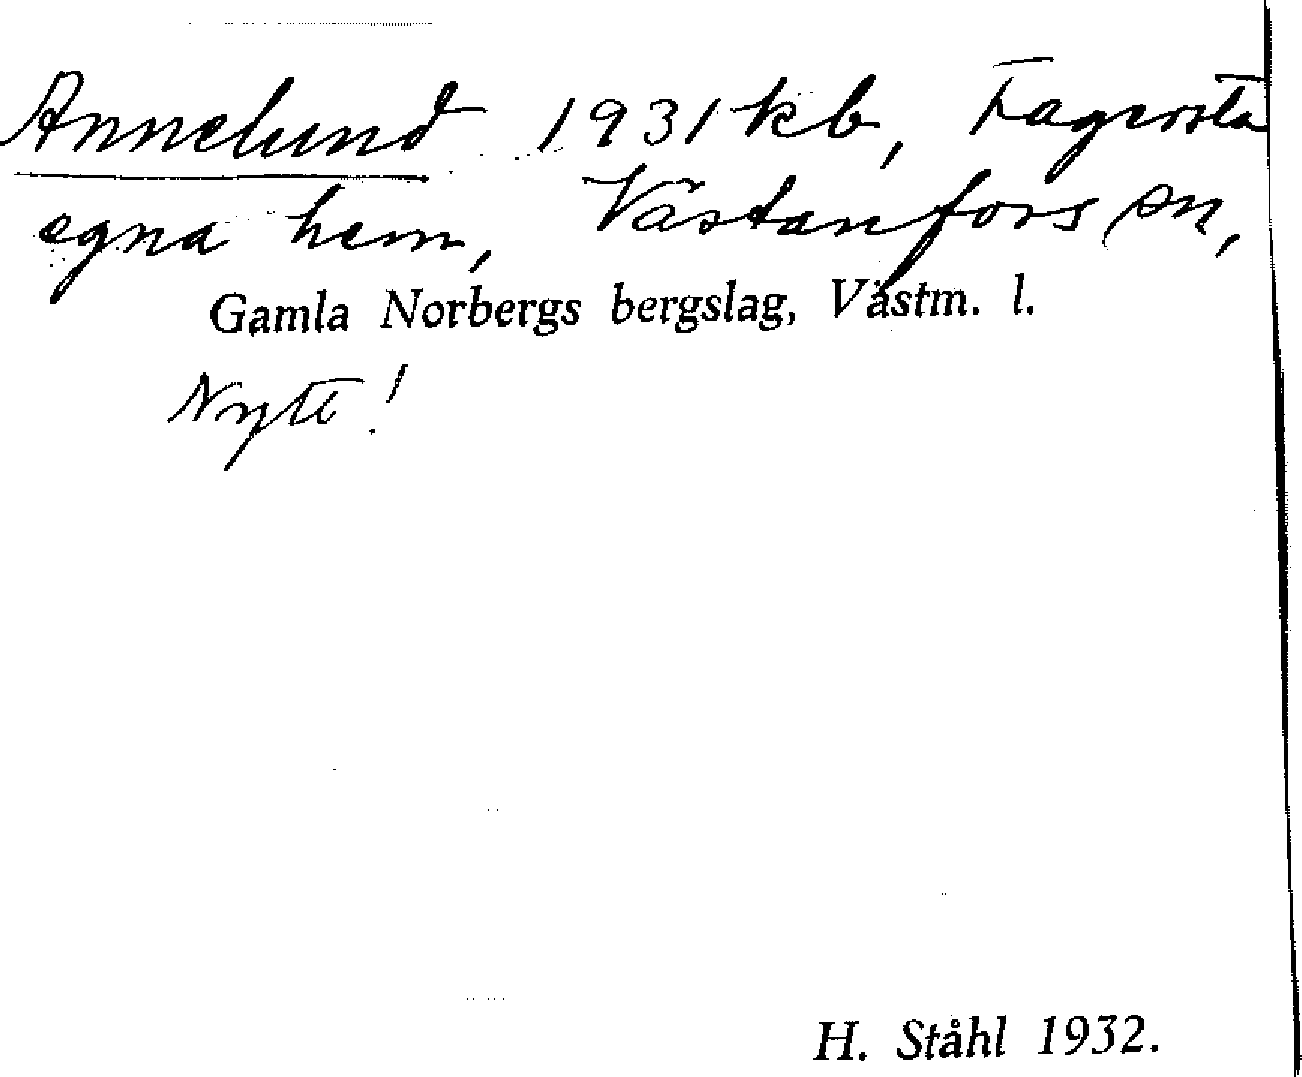 Annelund 1931 kb, Fagersta
egna hem, Västanfors sn,
Gamla Norbergs bergslag, Västm. l.
Nytt!
H. Ståhl 1932.